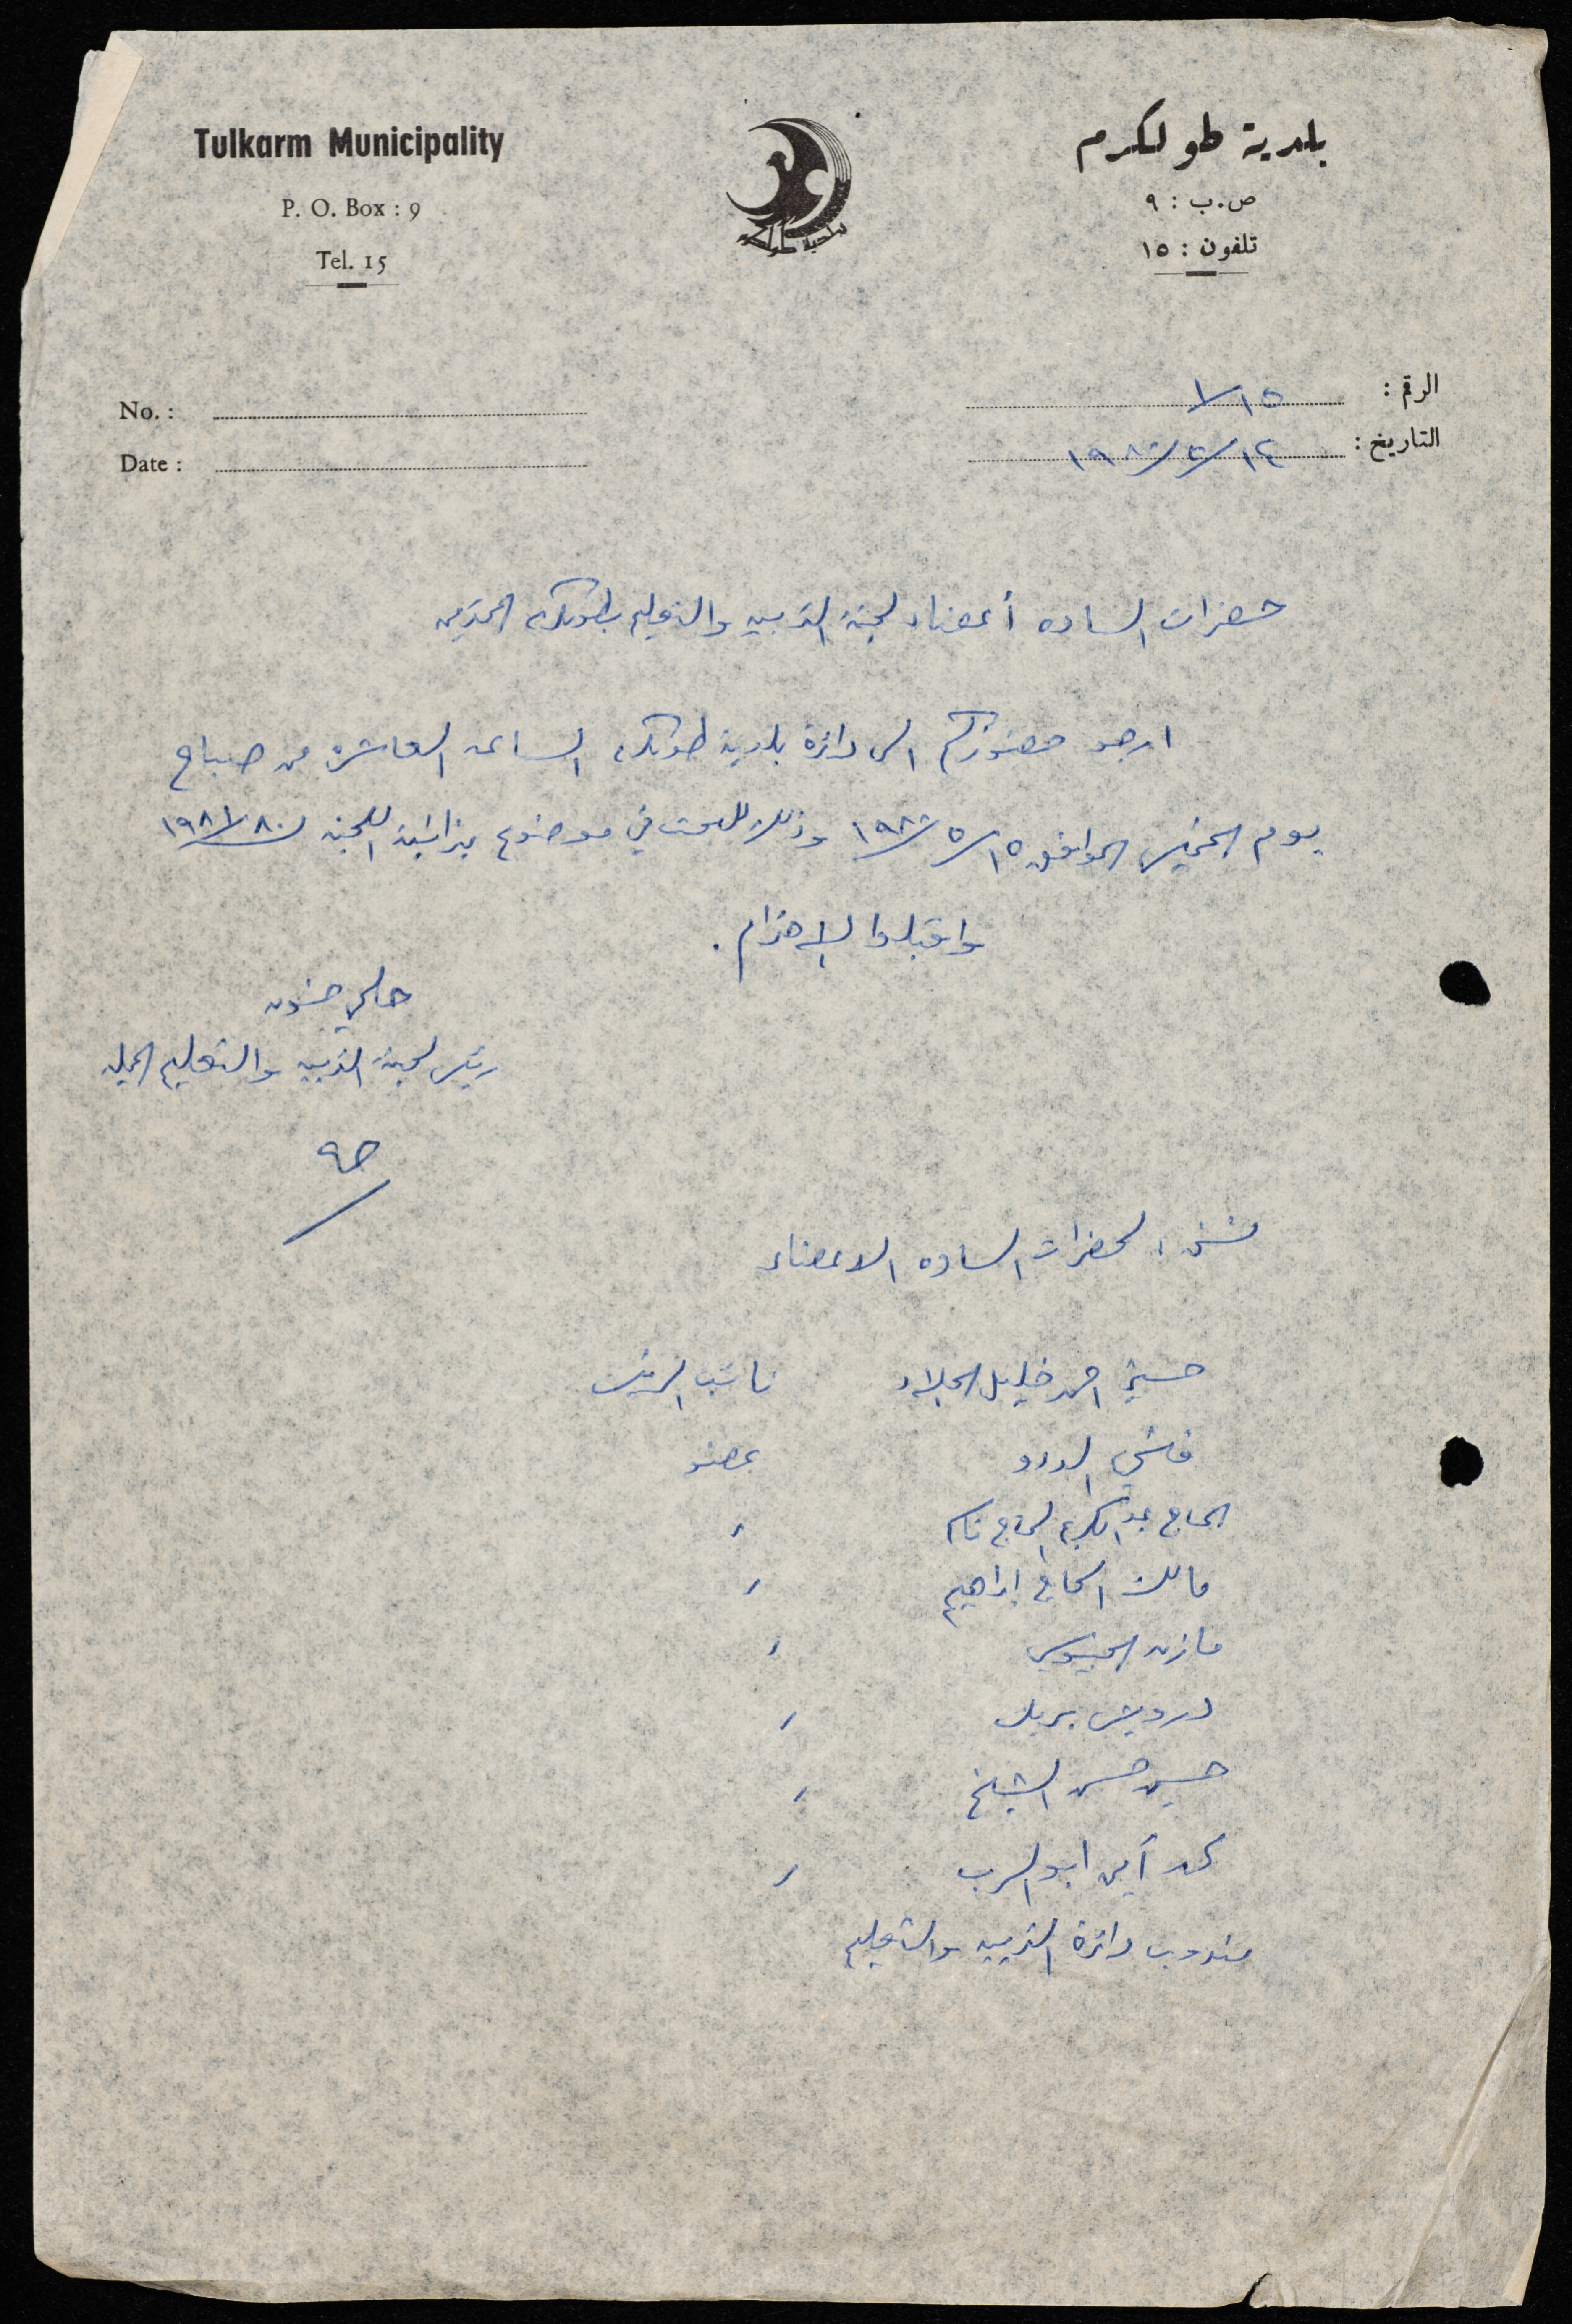 Tulkarm Municipality
P. O. Box : 9
Tel. 15
بلدية طولكرم
ص.ب : ٩
تلفون : ١٥
بلدية طولكرم
الرقم : ١/١٥
التاريخ : ١٤/٥/١٩٨٠
No. :
Date :
حضرات السادة أعضاء لجنة التربيه والتعليم بطولكرم المحترمين
ارجو حضوركم الى دائرة بلدية طولكرم الساعه العاشرة من صباح
يوم الخميس الموافق ١٥/٥/١٩٨٠ وذلك للبحث في موضوع ميزانية اللجنه لسنة ١٩٨١/٨٠
واقبلوا الاحترام .
حلمي حنون
رئيس لجنة التربيه والتعليم المحليه
نسخ : لحضرات الساده الاعضاء
حسني احمد خليل الجلاد نائب الرئيس
فتحي عضو
الحاج عبد الكريم الحاج "
مالك الحاج ابراهيم "
مازن الجيوسي "
درويش "
حسين حسن الشيخ "
محمد أمين ابو الرب "
مندوب دائرة التربيه والتعليم